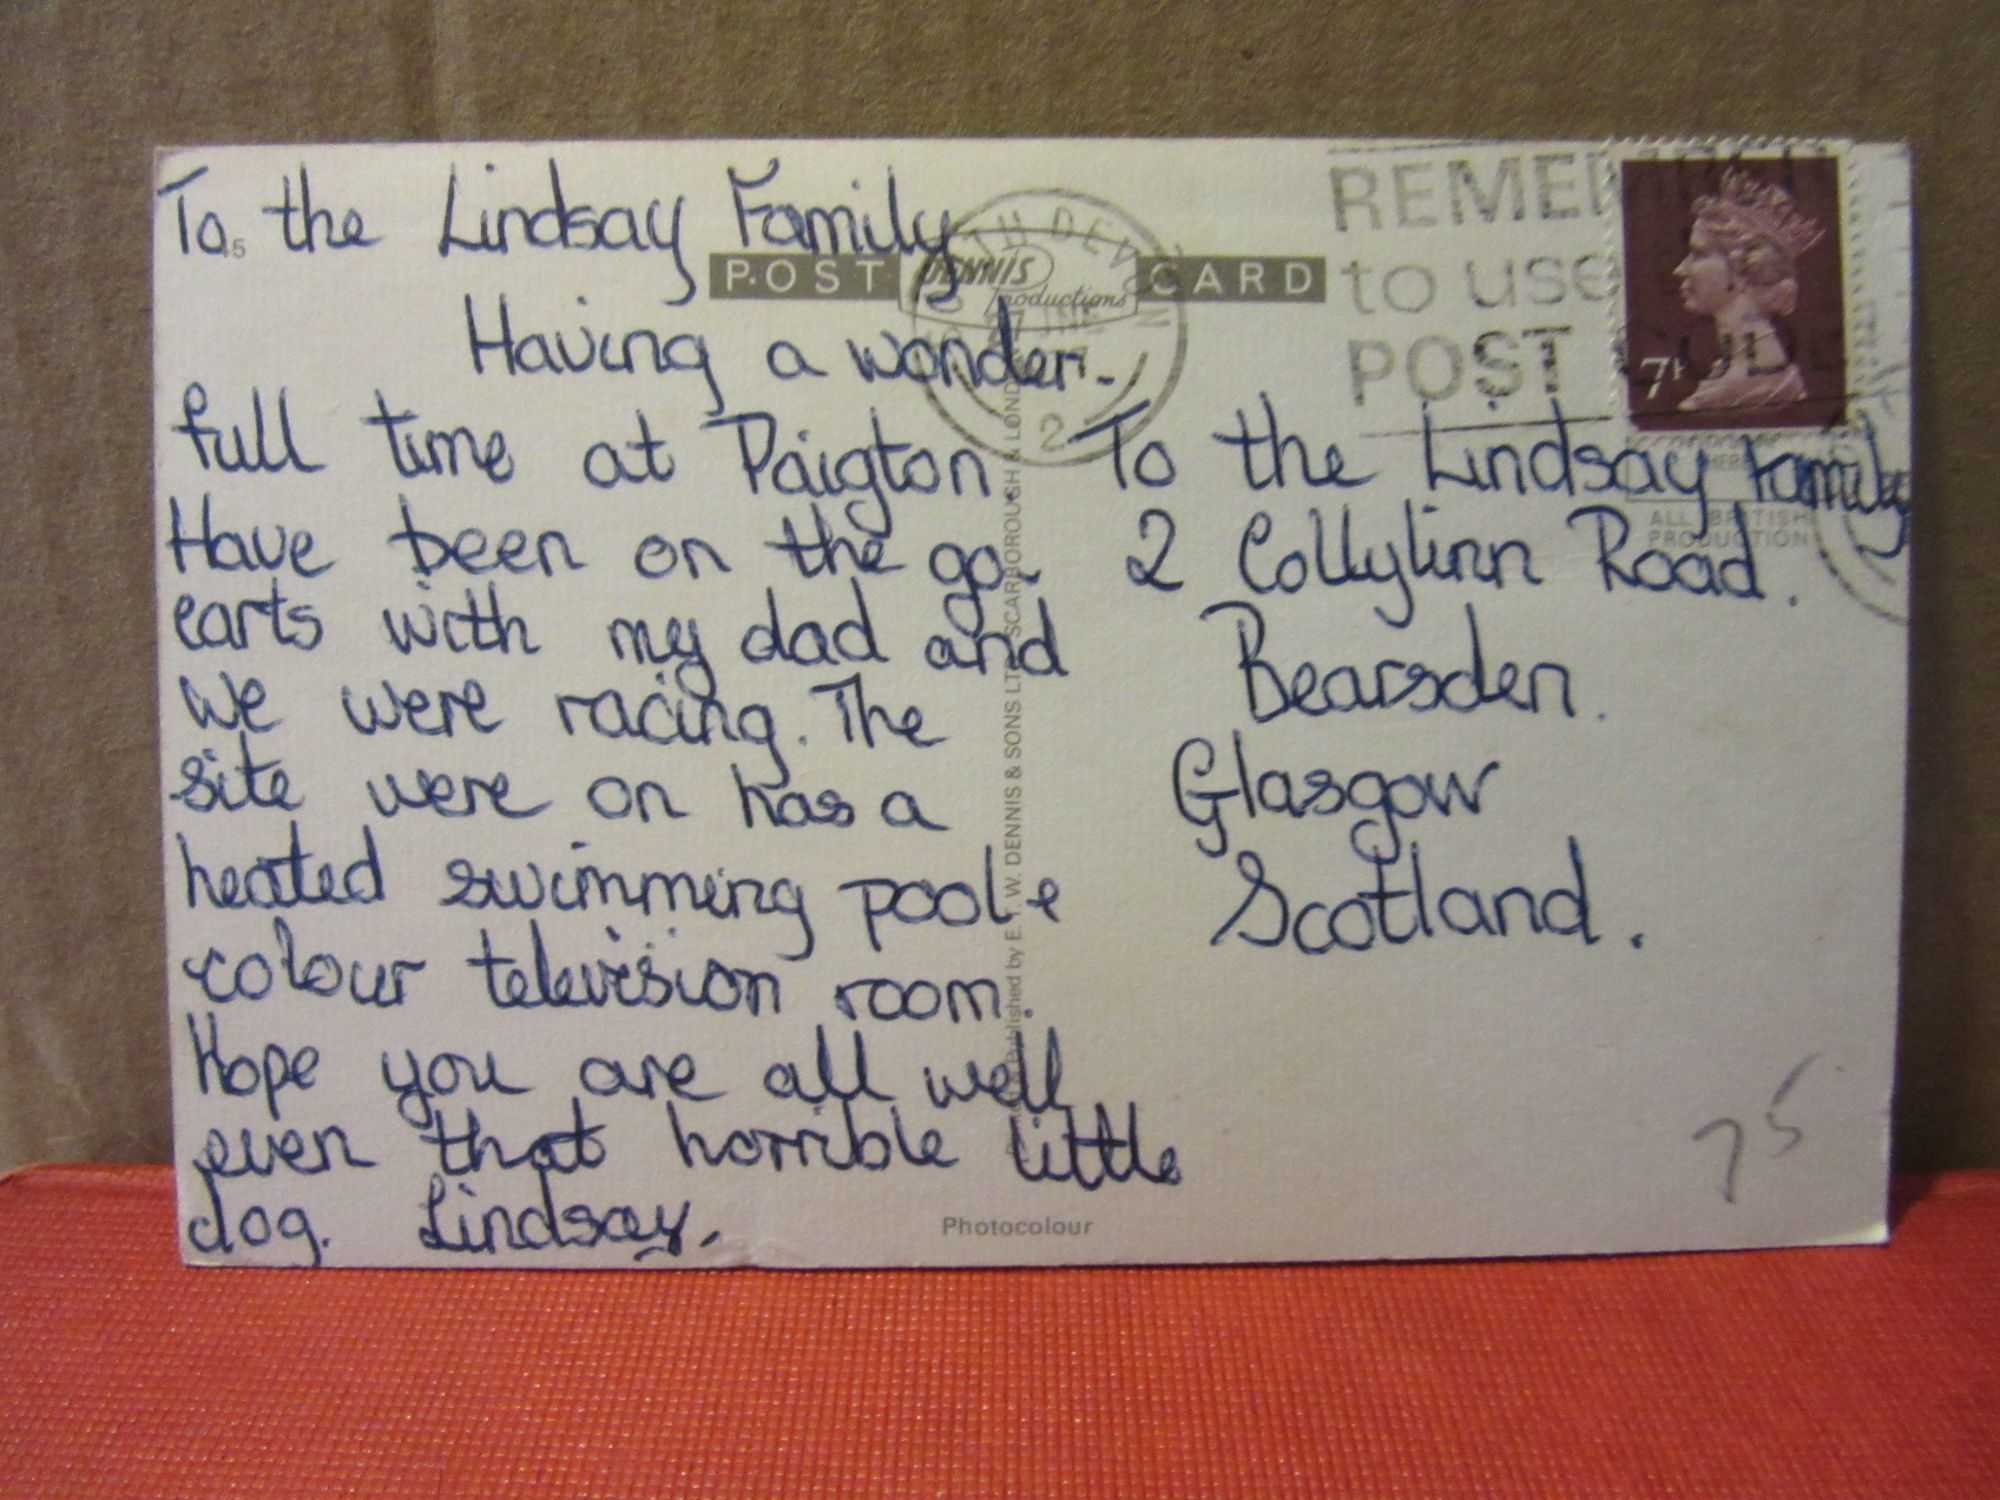 To the Lindsay Family
Having a wonder-
full time at Paigton
Have been on the go-
carts with my dad and
we were racing. The
site were on has a
heated swimming pool &
colour television room.
Hope you are all well
even that horrible little
dog. Lindsay.
5
POST CARD
DENNIS
Productions
DEVON
2
REMEMBER
to use
POST CODE
7P
To the Lindsay Family
2 Collylinn Road.
Bearsden.
Glasgow
Scotland.
ALL BRITISH
PRODUCTION
Published by E. T. W. DENNIS & SONS LTD., SCARBOROUGH & LONDON
Photocolour
75